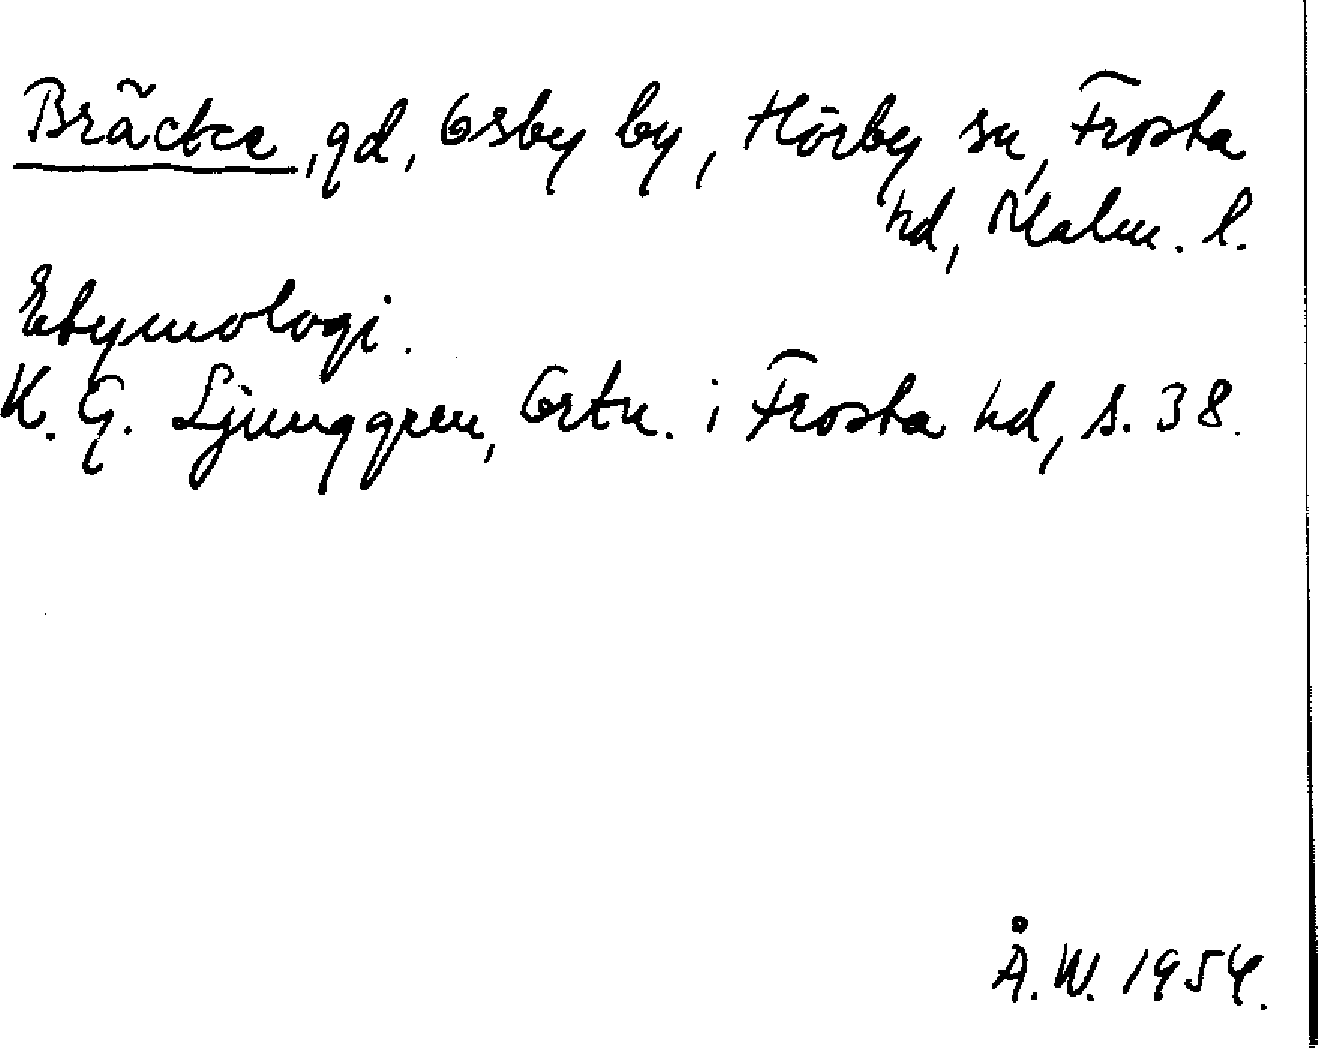 Bräcke, gd, Osby by, Hörby sn, Frosta
hd, Malm. l.
Etymologi.
K. G. Ljunggren, Ortn. i Frosta hd, s. 38.
Å. W. 1954.